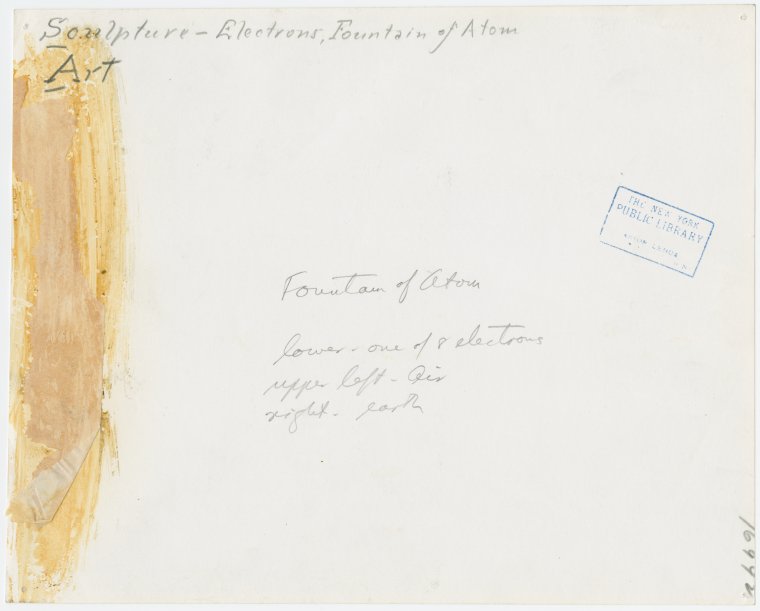 Sculpture - Electrons, Fountain of Atom
Art
THE NEW YORK
PUBLIC LIBRARY
Fountain of Atom
lower - one of 8 electrons
upper left - Air
right - earth